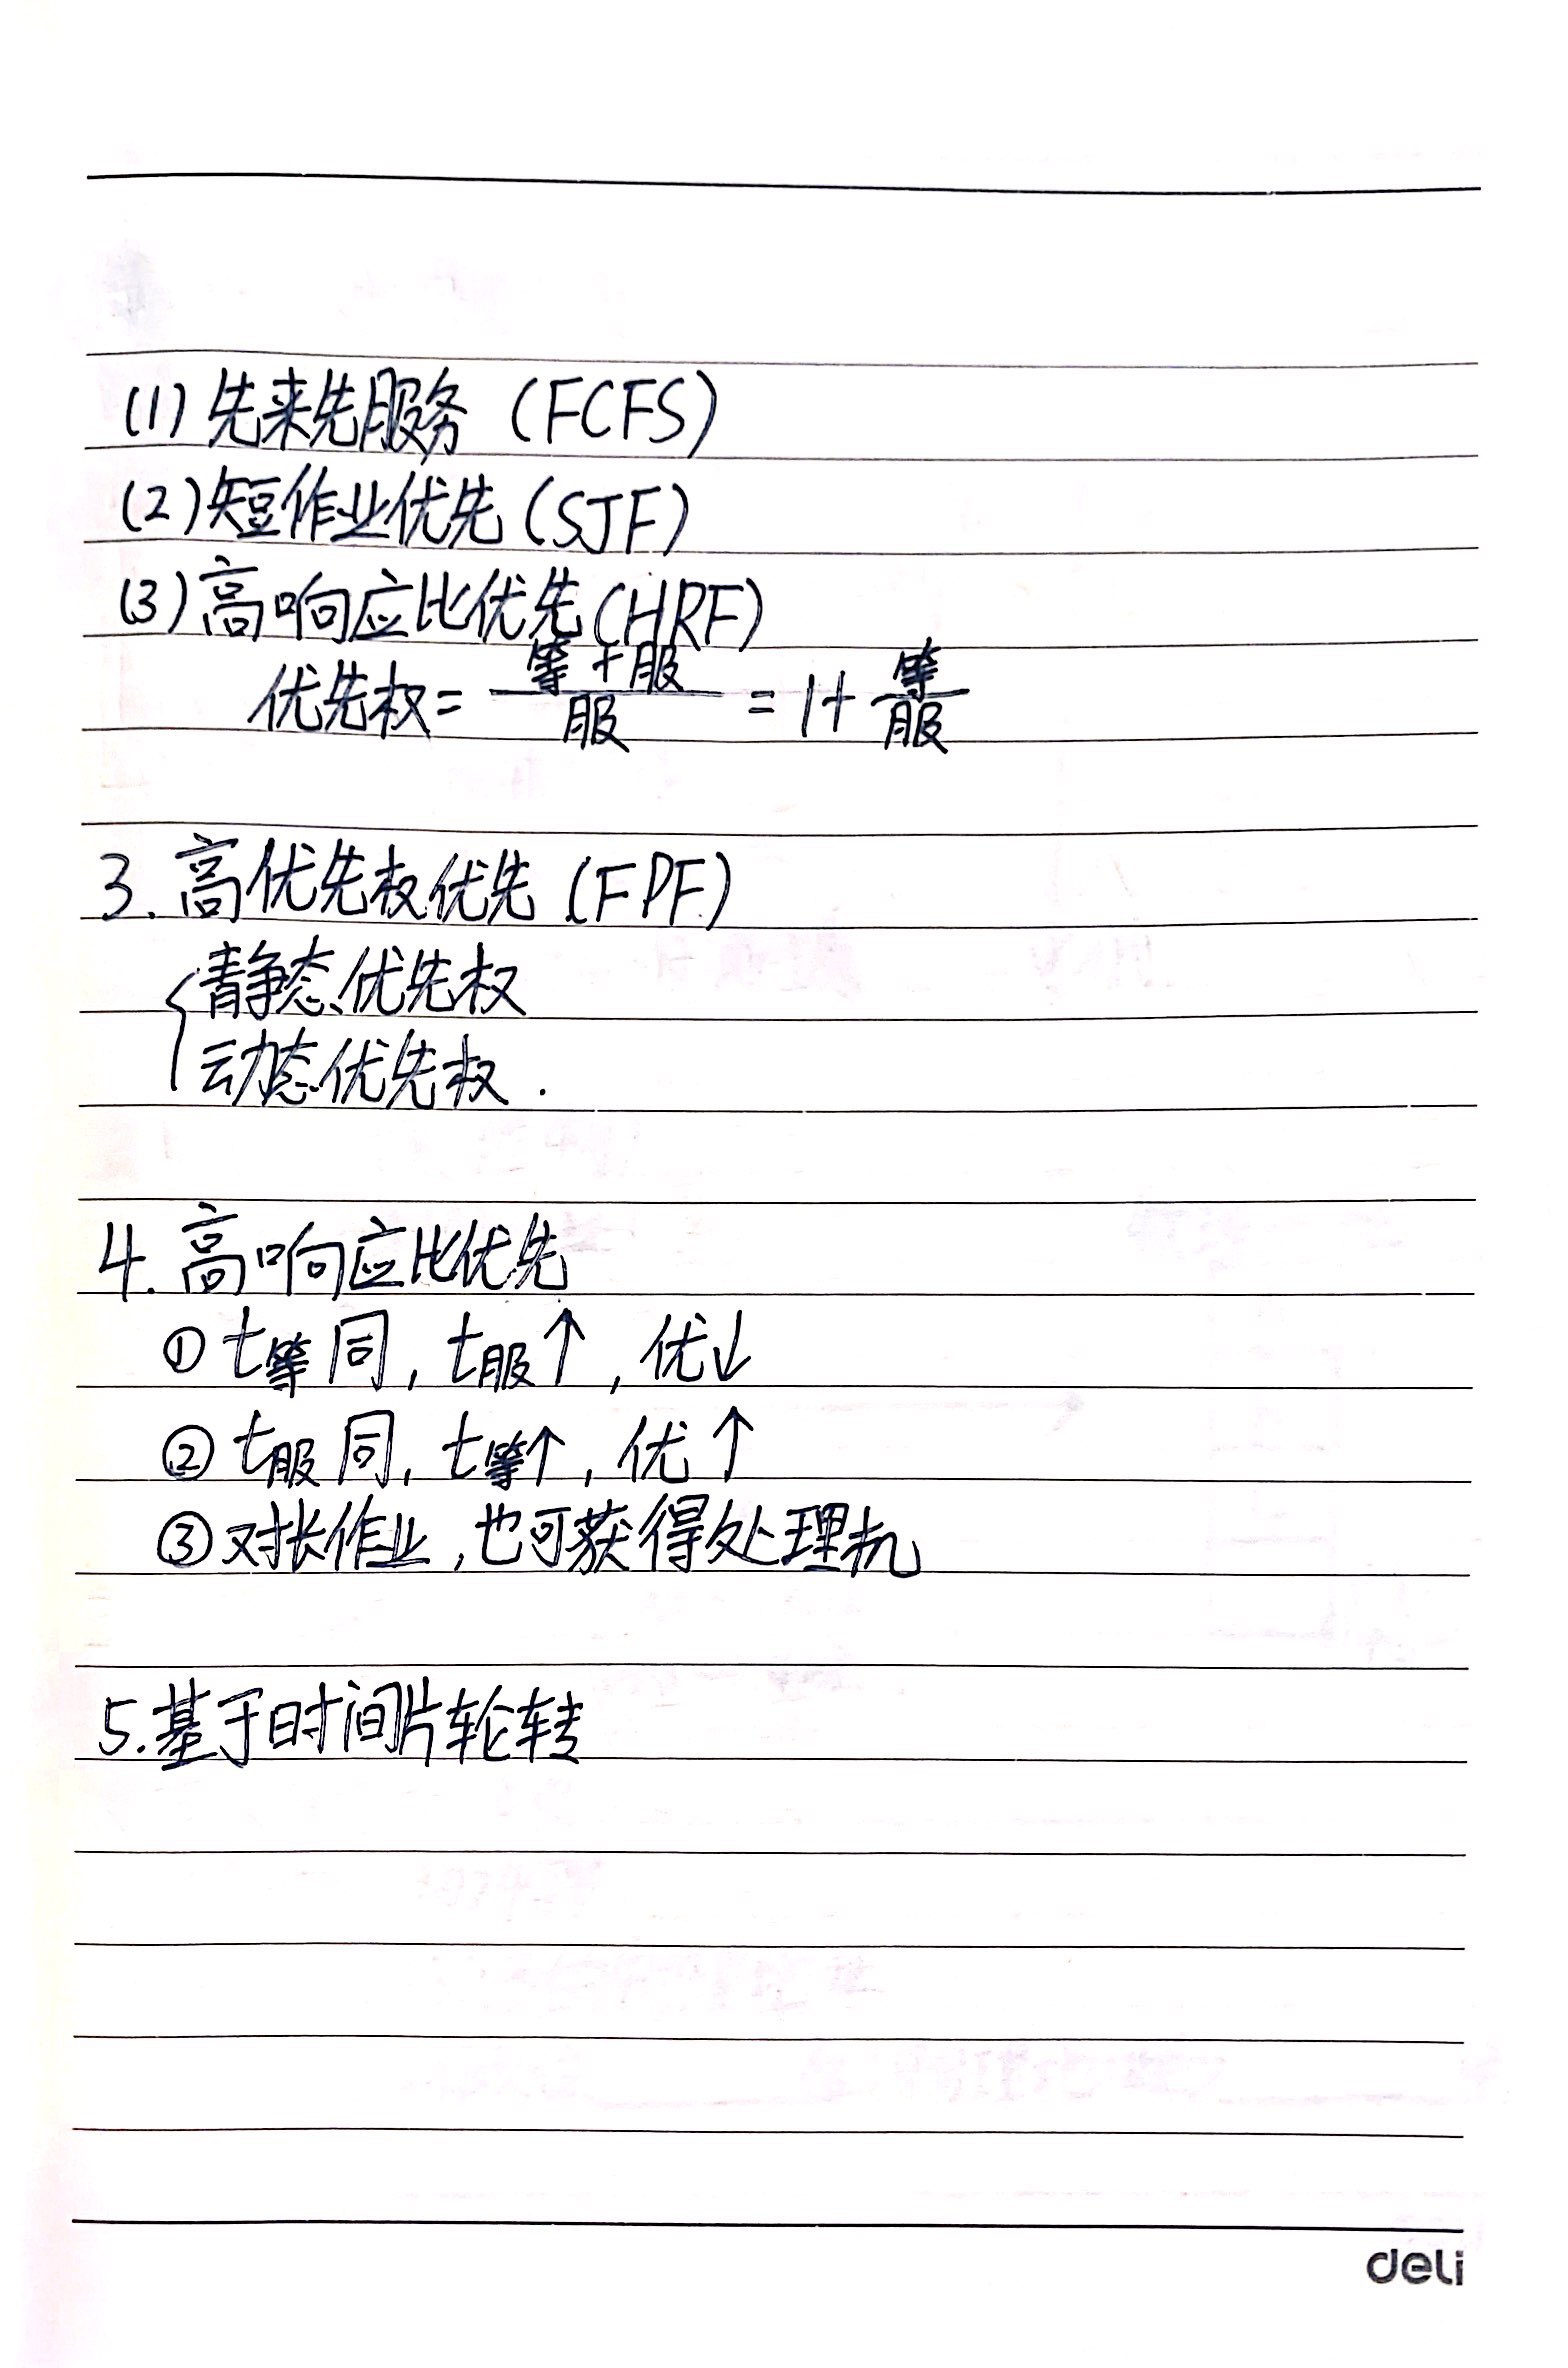 (1) 先来先服务 (FCFS)
(2) 短作业优先 (SJF)
(3) 高响应比优先 (HRF)
优先权 = (等 + 服) / 服 = 1 + 等 / 服
3. 高优先权优先 (FPF)
{静态优先权
动态优先权.
4. 高响应比优先
① t等同, t服↑, 优↓
② t服同, t等↑, 优↑
③ 对长作业, 也可获得处理机
5. 基于时间片轮转
deli